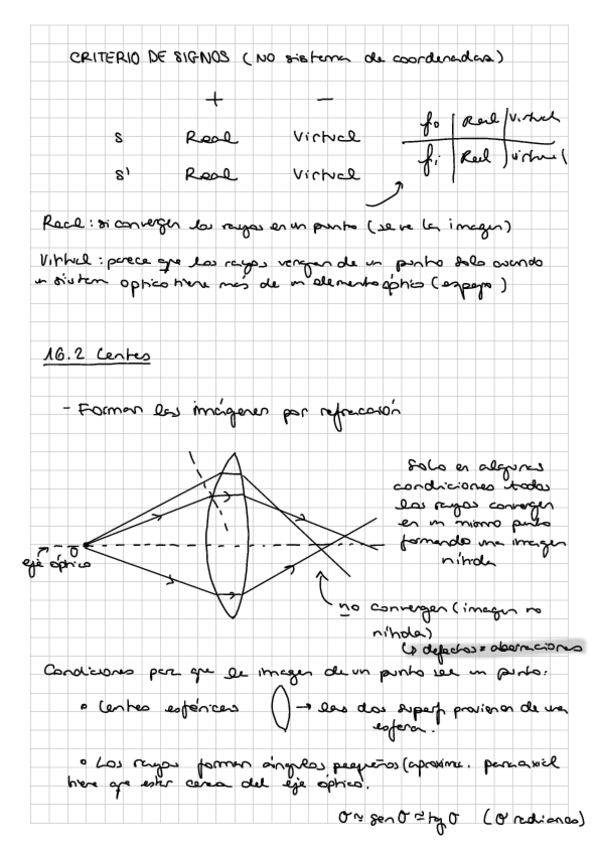 CRITERIO DE SIGNOS (NO sistema de coordenadas)
+ −
s Real Virtual
s' Real Virtual
fo Real Virtual
fi Real virtual
Real: si convergen los rayos en un punto (se ve la imagen)
Virtual: parece que los rayos vengan de un punto solo cuando
un sistem optico tiene más de un elemento óptico (espejo)
16.2 Lentes
- Forman las imágenes por refracción
Solo en algunas
condiciones todos
los rayos convergen
en un mismo punto
formando una imagen
nítida
O
eje óptico
no convergen (imagen no
nítida)
↳ defectos = aberraciones
Condiciones para que la imagen de un punto sea un punto:
• Lentes esféricas → las dos superf. provienen de una
esfera.
• Los rayos forman ángulos pequeños (aproxim. paraaxial
tiene que estar cerca del eje óptico.
σ ≈ sen σ ≈ tg σ (σ radianes)